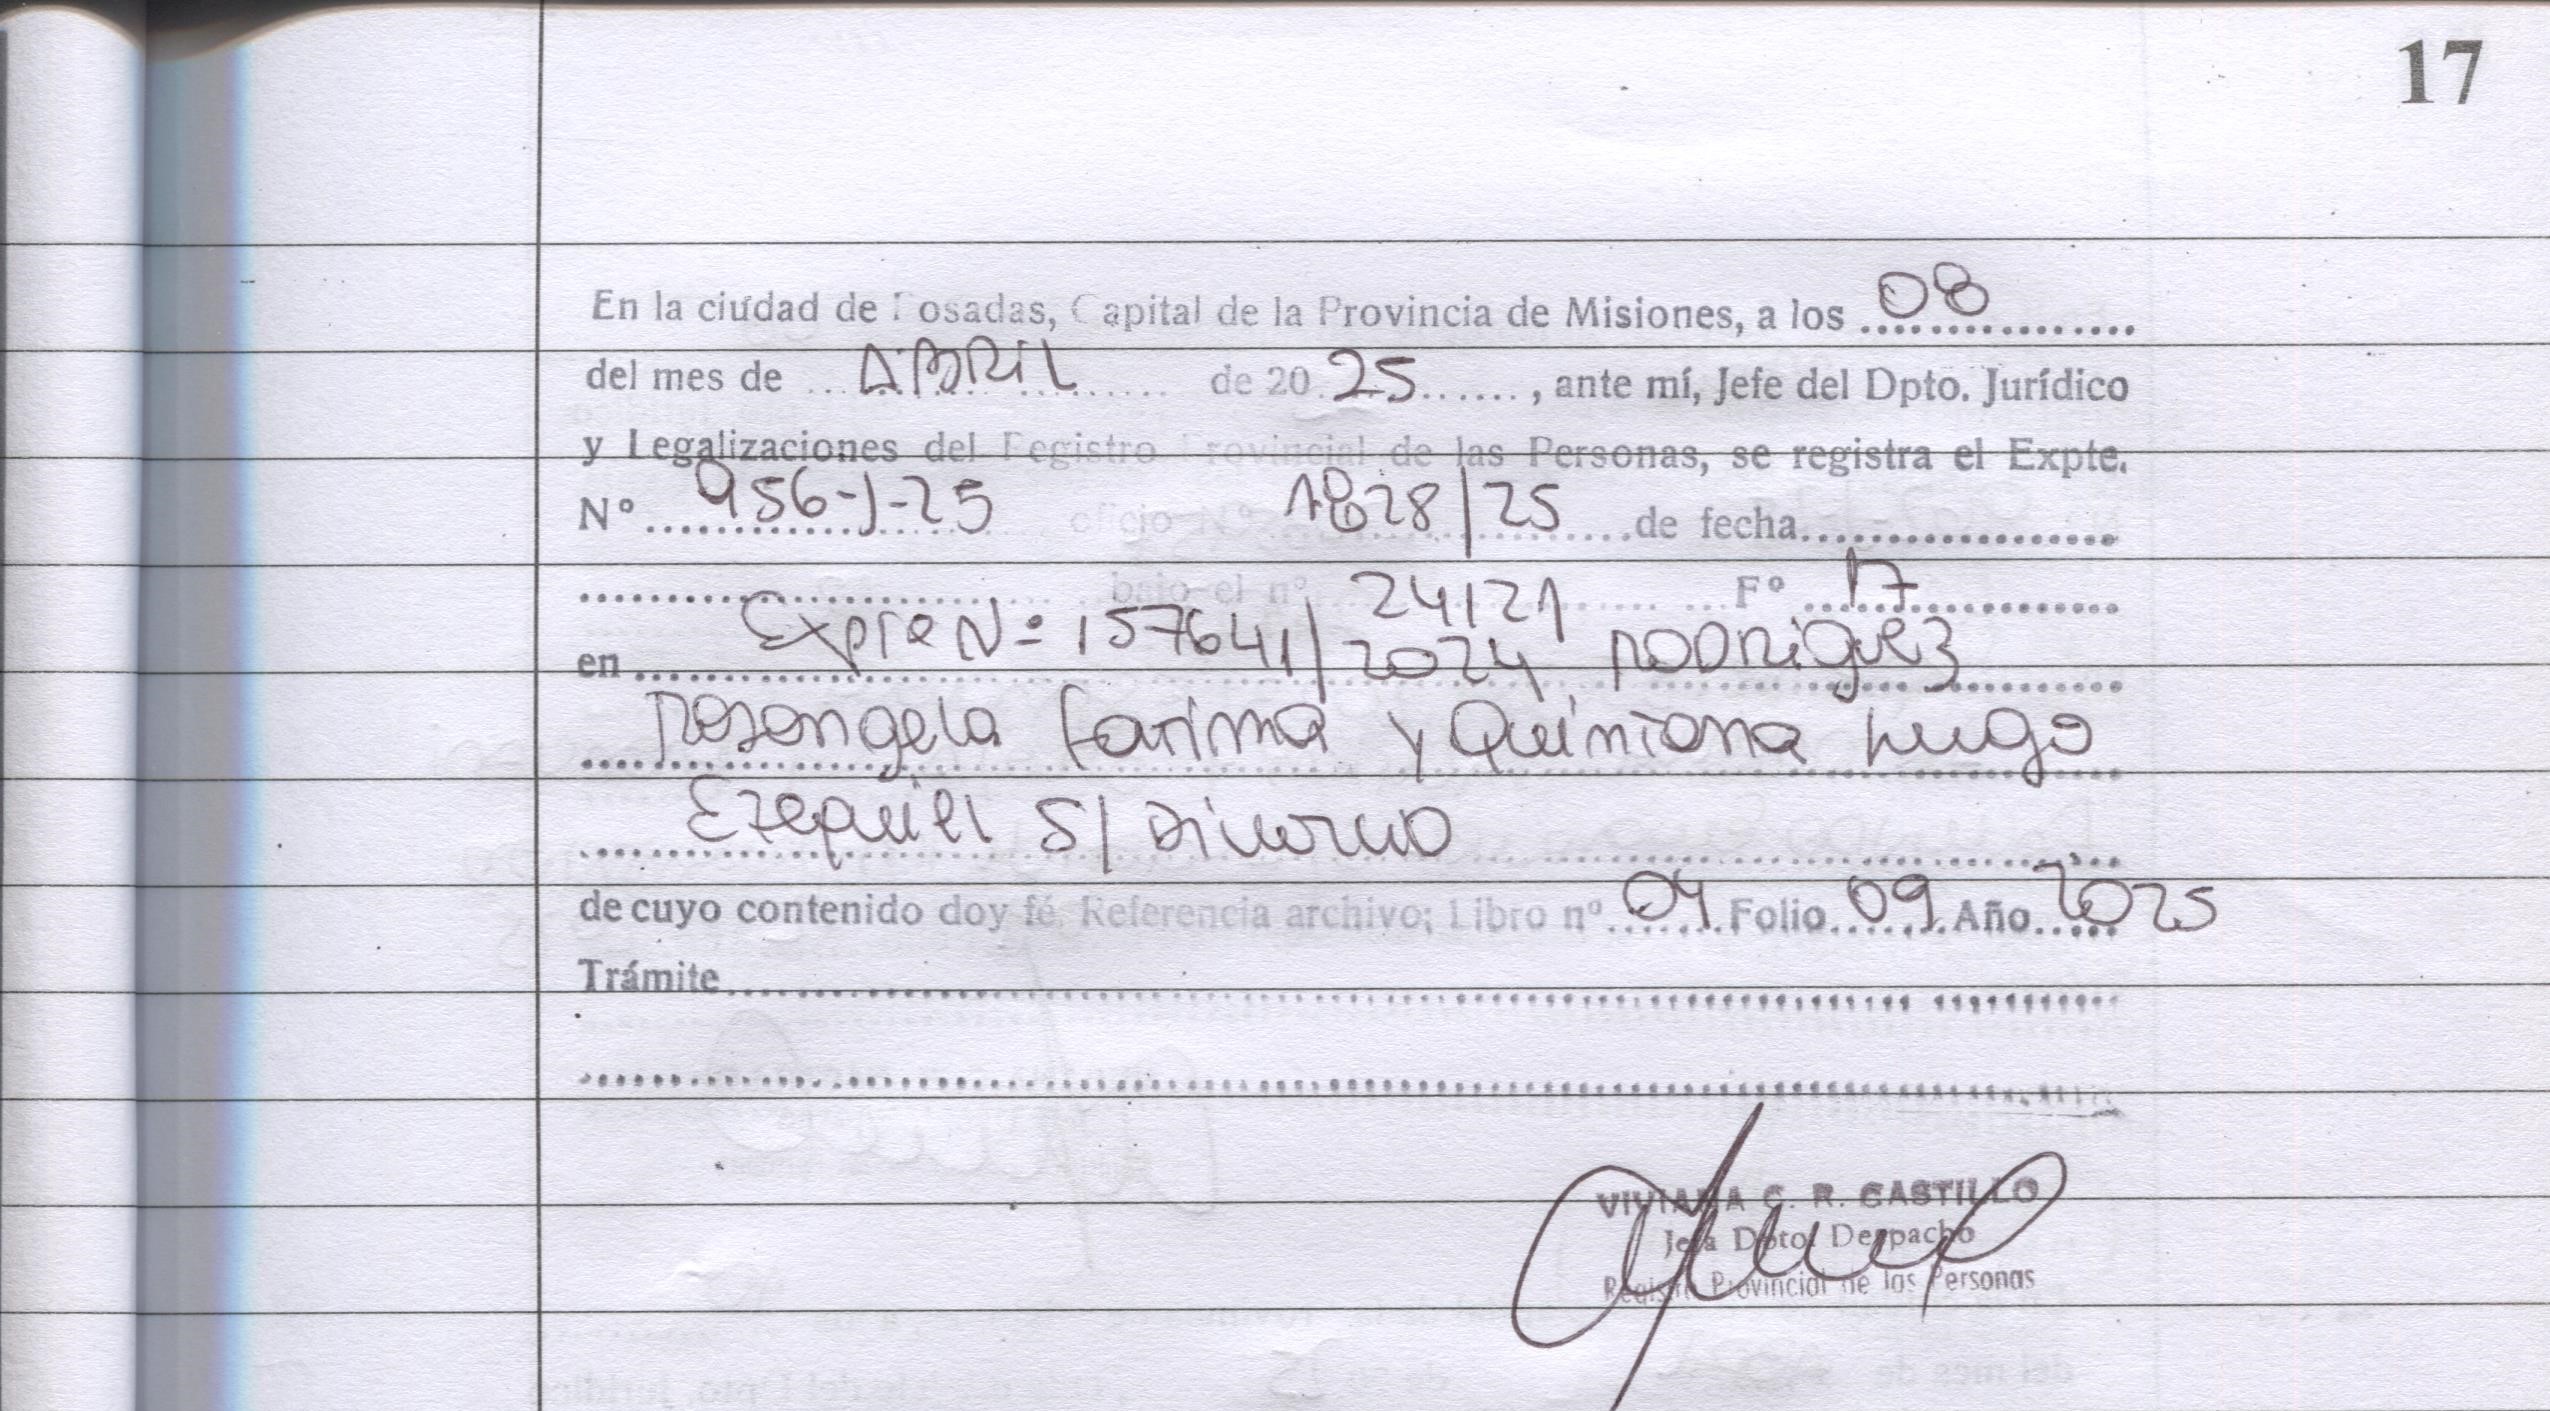 17
En la ciudad de Posadas, Capital de la Provincia de Misiones, a los 08
del mes de ABRIL de 20 25, ante mí, Jefe del Dpto. Jurídico
y Legalizaciones del Registro Provincial de las Personas, se registra el Expte.
Nº 956-J-25 oficio Nº 1828/25 de fecha
bajo el nº 24121 Fº 17
en Expte Nº 157641/2024 Rodriguez
Rosangela Fatima y Quintana Hugo
Ezequiel S/ Divorcio
de cuyo contenido doy fé. Referencia archivo; Libro nº 04 Folio 09 Año 2025
Trámite
VIVIANA C. R. CASTILLO
Jefa Dpto. Despacho
Registro Provincial de las Personas